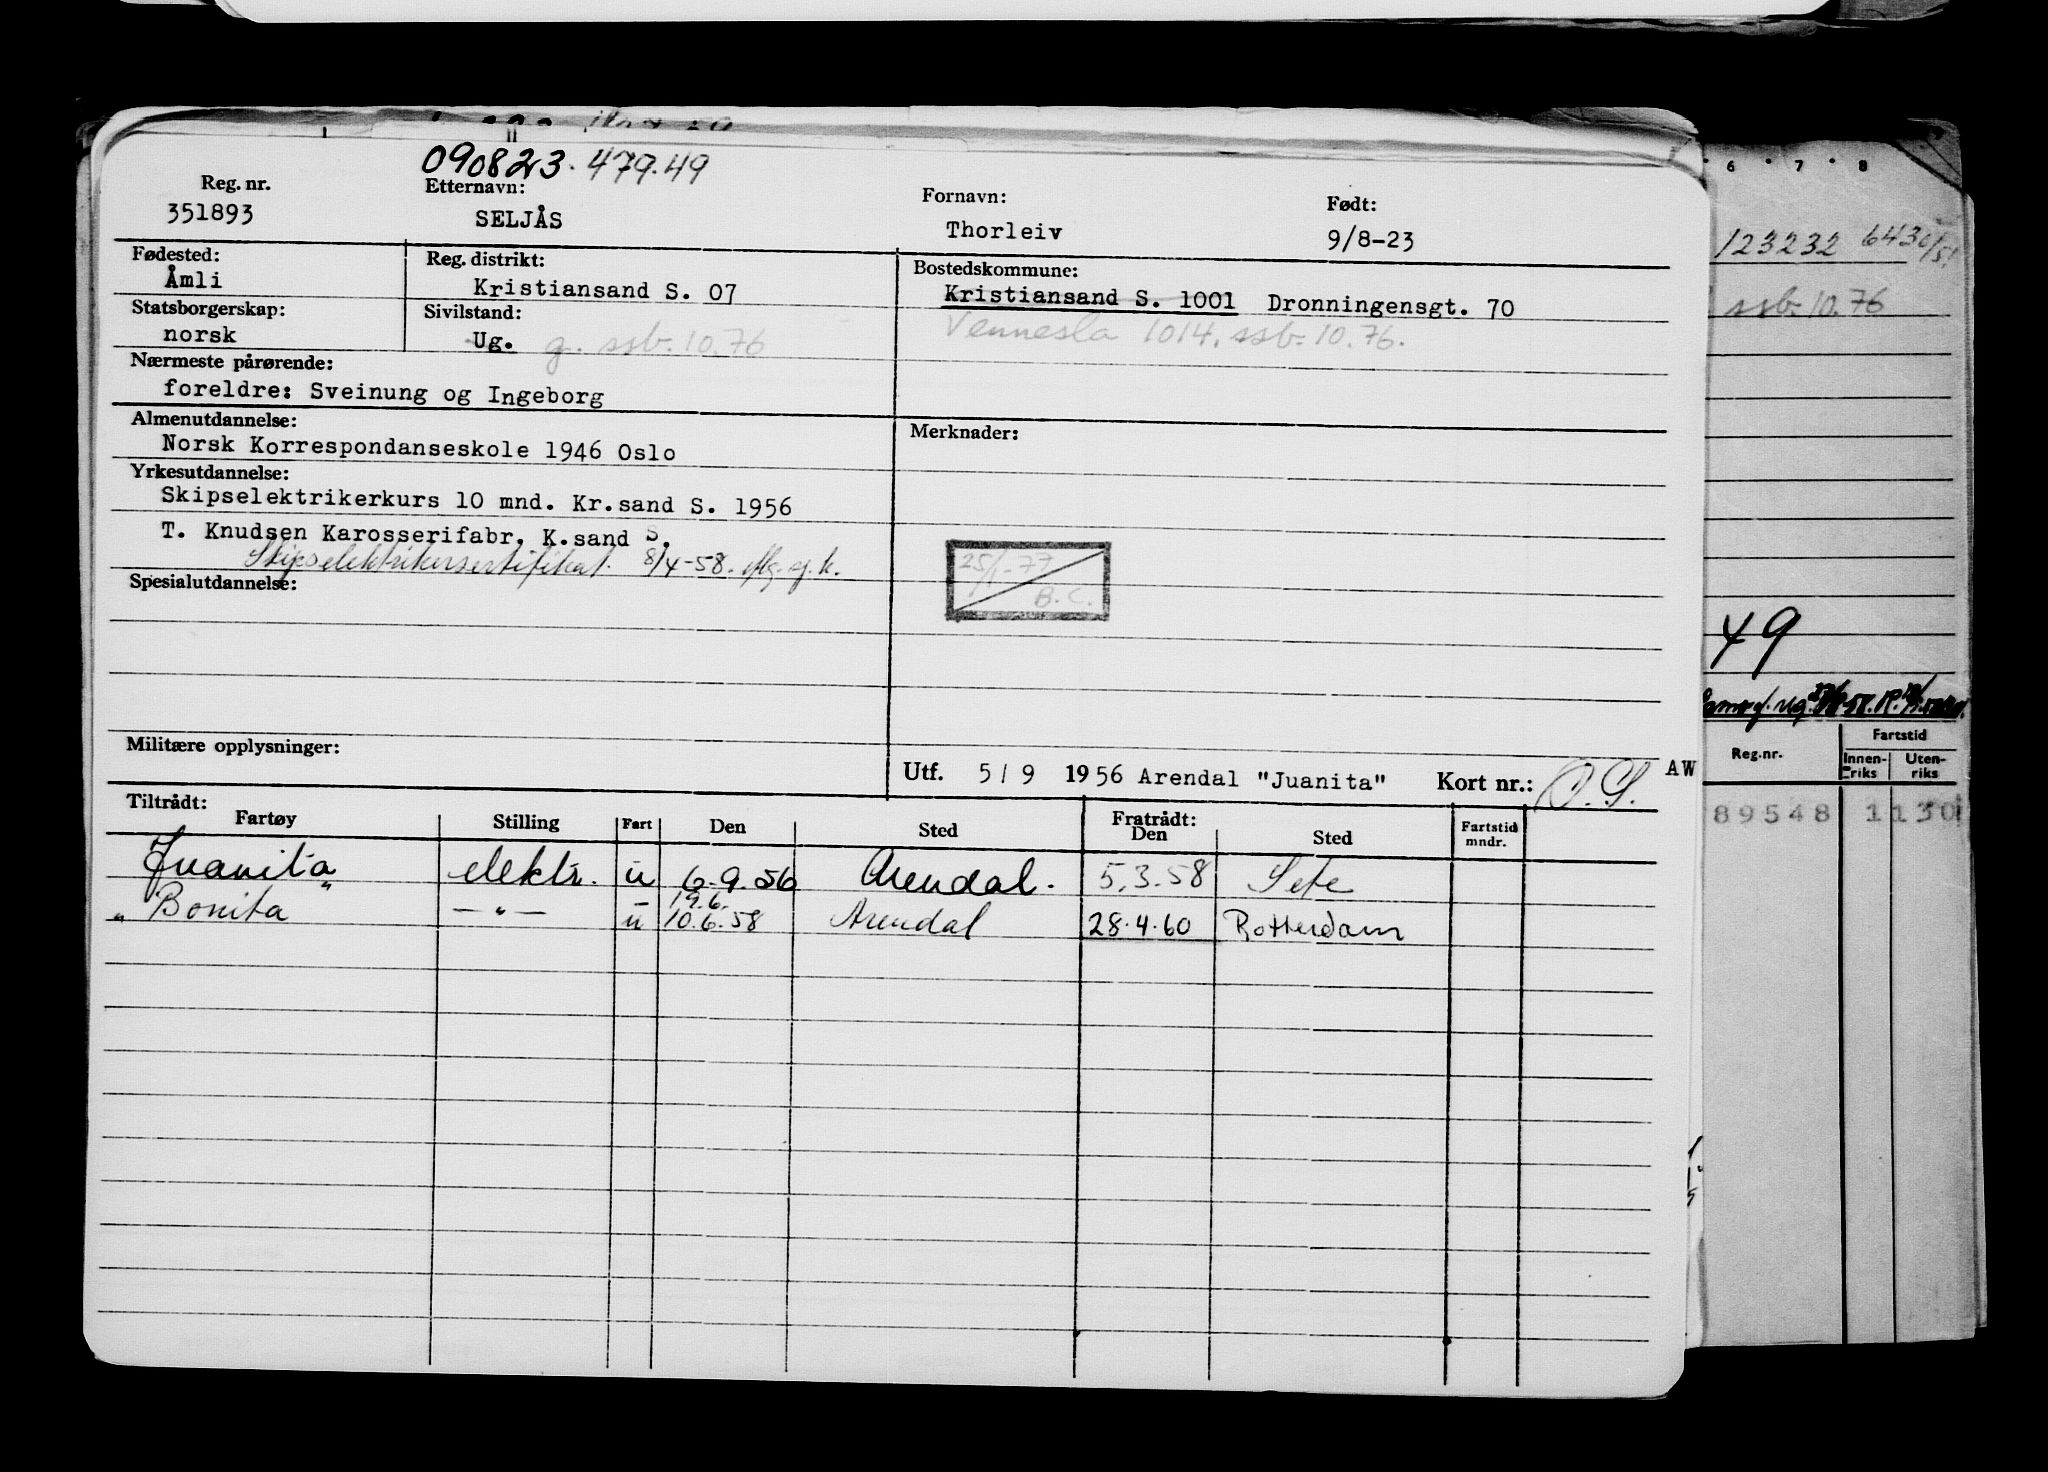 090823.479.49
Reg. nr. Etternavn: Fornavn: Født:
351893 SELJÅS Thorleiv 9/8-23
Fødested: Reg. distrikt: Bostedskommune:
Åmli Kristiansand S. 07 Kristiansand S. 1001 Dronningensgt. 70
Statsborgerskap: Sivilstand: Vennesla 1014. ssb. 10.76.
norsk Ug. g. ssb. 10.76
Nærmeste pårørende:
foreldre: Sveinung og Ingeborg
Almenutdannelse: Merknader:
Norsk Korrespondanseskole 1946 Oslo
Yrkesutdannelse:
Skipselektrikerkurs 10 mnd. Kr.sand S. 1956
T. Knudsen Karosserifabr, K.sand S.
Skipselektrikersertifikat. 8/4-58.
25/1-77
B.C.
Spesialutdannelse:
Militære opplysninger:
Utf. 5/9 1956 Arendal "Juanita" Kort nr.: O.S. AW
Tiltrådt: Fratrådt:
Fartøy Stilling Fart Den Sted Den Sted Fartstid mndr.
Juanita" elektr. u 6.9.56 Arendal. 5.3.58 Sete
19.6.
"Bonita — " — u 10.6.58 Arendal 28.4.60 Rotterdam
6 7 8
123232 6430/51
ssb. 10.76
49
Reg.nr. Fartstid
Innen-riks Uten-riks
89548 1 130